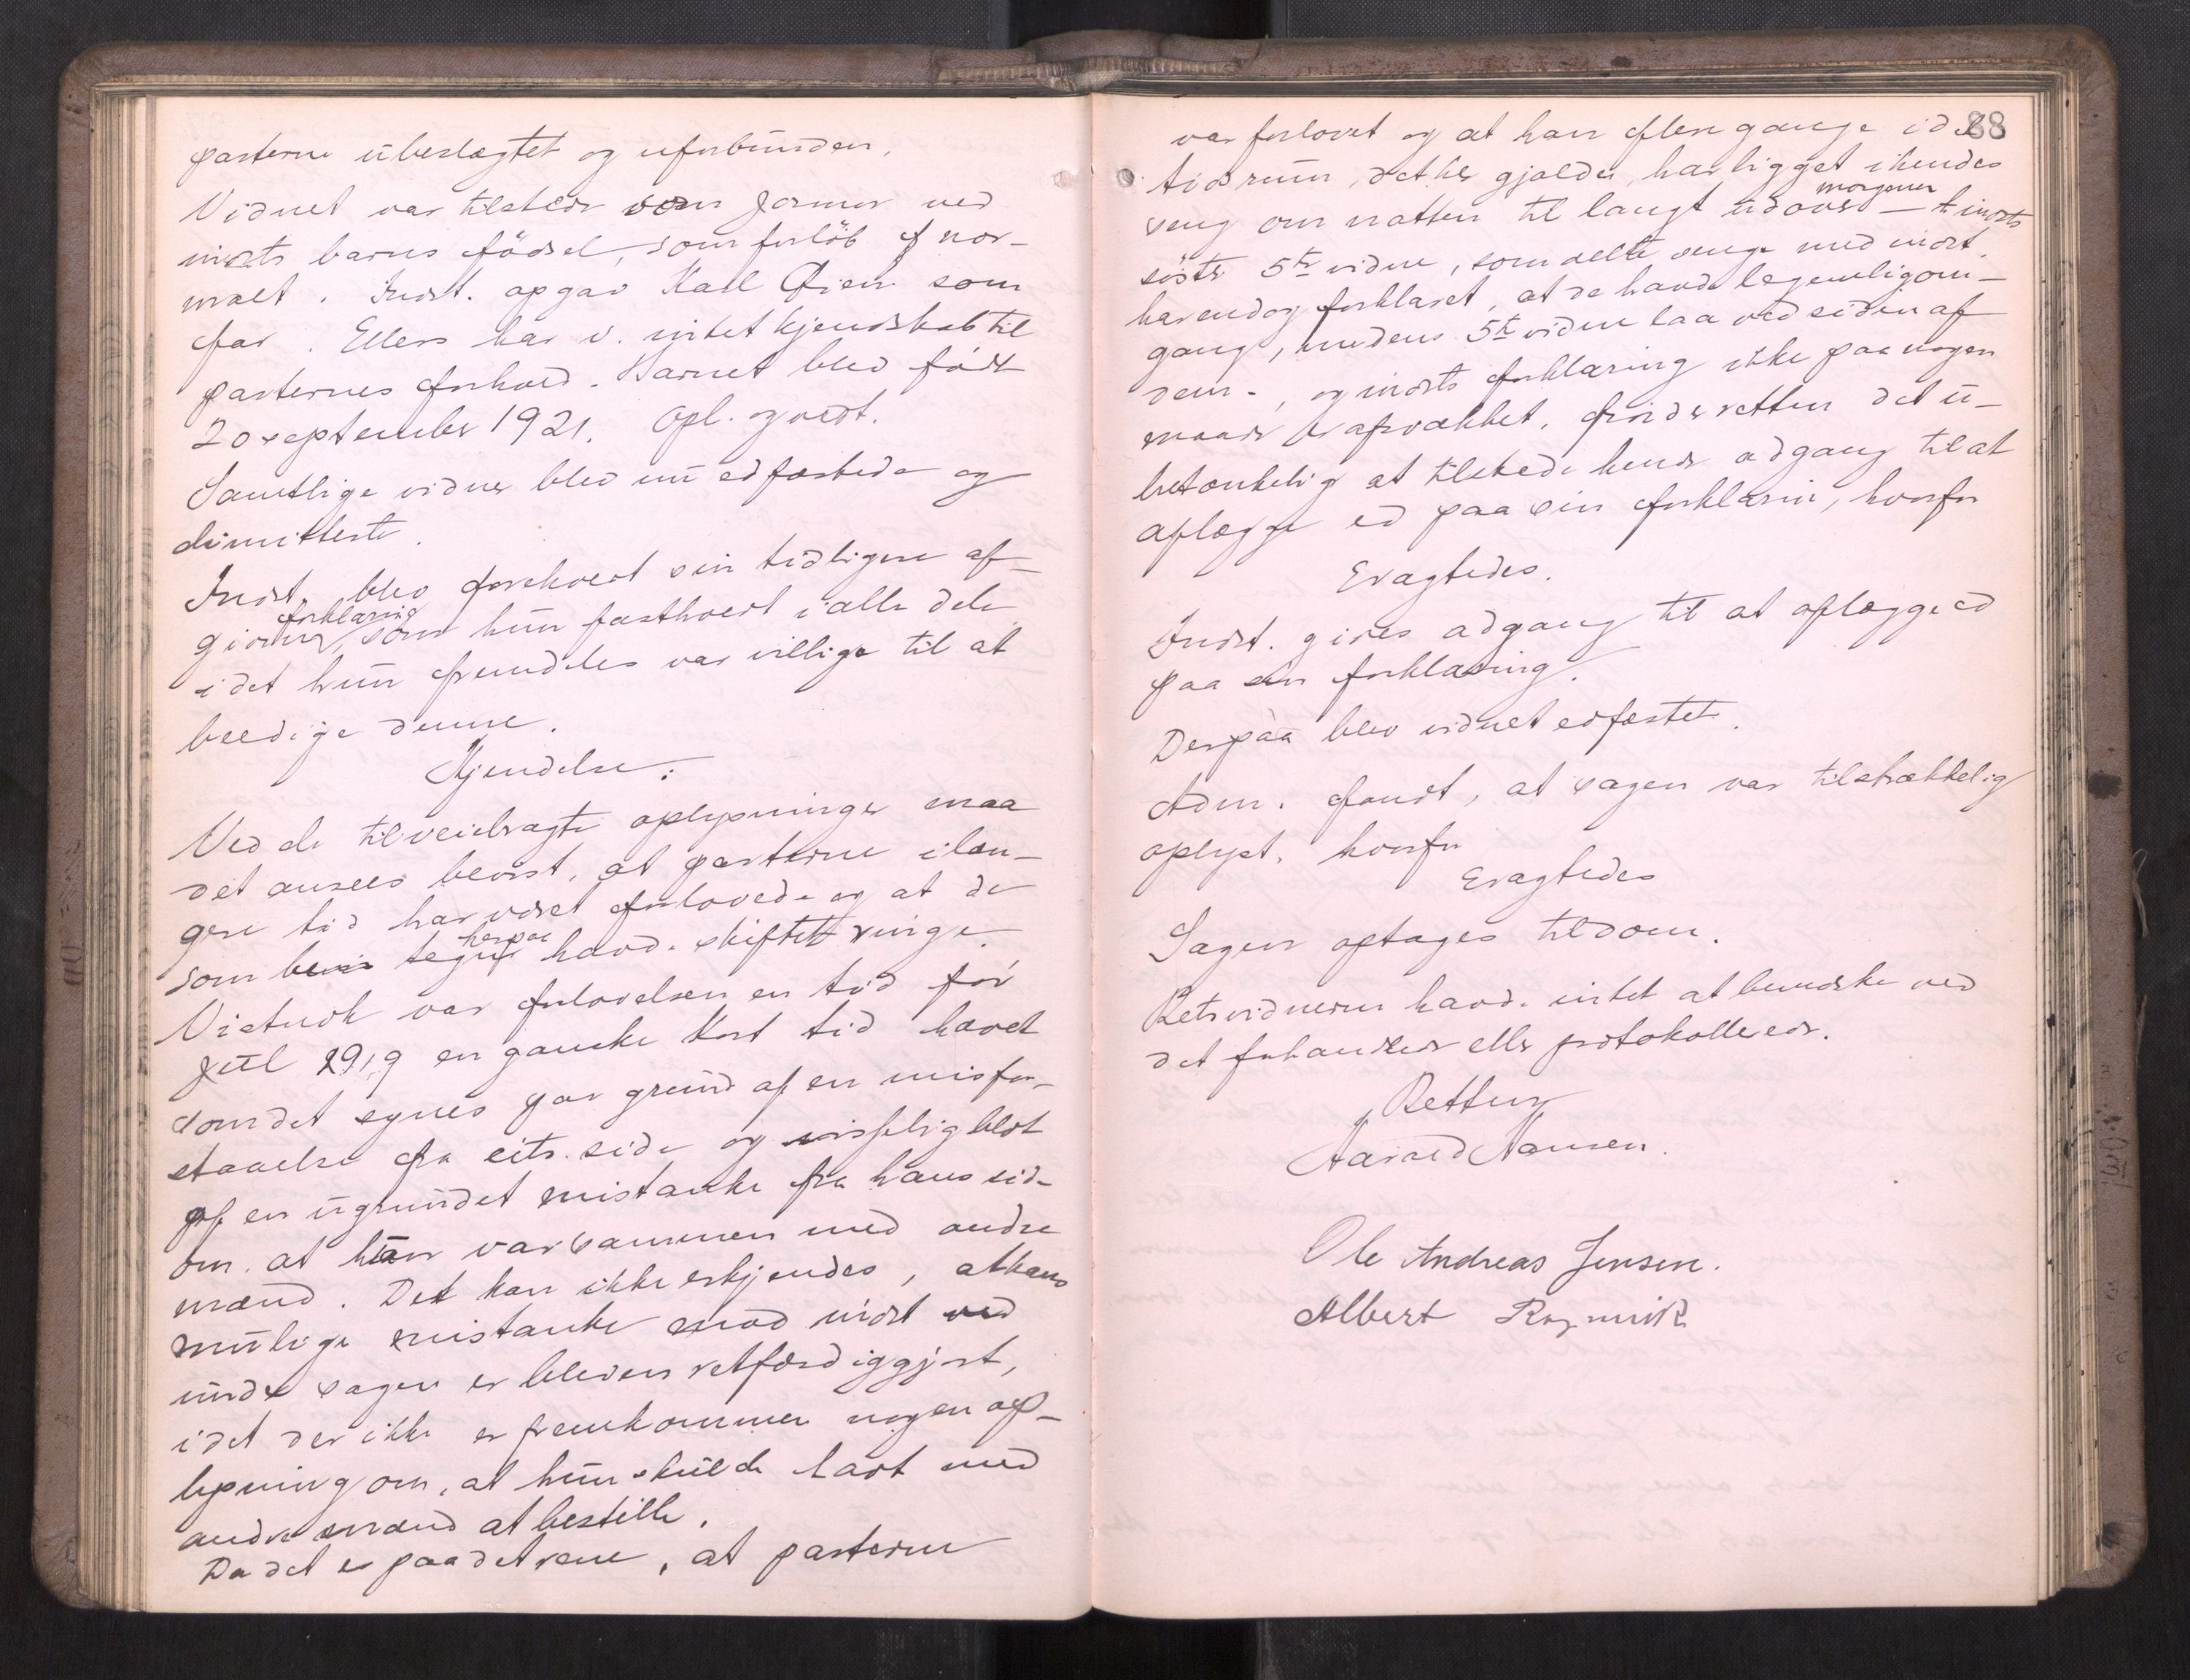 parterne ubeslægtet og uforbunden.
Vidnet var tilstede som Jormor ved
indsts barns fødsel, som forløb nor-
malt. Indst. opgav Karl Øien som
far. Ellers har v. intet kjendskab til
parternes forhold. Barnet blev født
20 september 1921. Opl. og vedt.
Samtlige vidner blev nu edfæstede og
dimitterte.
Indst. blev foreholdt sin tidligere af-
givne forklaring, som hun fastholdt i alle dele
idet hun fremdeles var villige til at
beedige denne.
Kjendelse:
Ved de tilveiebragte oplysninger maa
det ansees bevist, at parterne i læn-
gere tid har været forlovede og at de
som tegn herpaa havde skiftet ringe.
Vistnok var forlovelsen en tid før
Jul 1919 en ganske kort tid hævet
som det synes paa grund af en misfor-
staaelse fra cits. side og blot
af en ugrundet mistanke fra hans side
om at hun var sammen med andre
mænd. Det kan ikke erkjendes, at hans
mulige mistanke mod indst ved
under sagen er bleven retfærdiggjort,
idet der ikke er fremkommen nogen op-
lysning om, at hun skulde havt med
andre mænd at bestille.
Da det er paa det rene, at parterne
88
var forlovet og at han flere gange i det
tidsrum, det her gjælder, har ligget i hendes
seng om natten til langt udover morgenen – indsts
søster 5te vidne, som delte senge med indst.
har endog forklaret, at de havde legemlig om-
gang, medens 5te vidne laa ved siden af
dem -, og indsts forklaring ikke paa nogen
maade er afsvækket, finder retten det u-
betænkelig at tilstede hende adgang til at
aflægge ed paa sin forklarin, hvorfor
Eragtedes.
Indst. gives adgang til at aflægge ed
paa sin forklaring.
Derpaa blev vidnet edfæstet.
Adm. fandt, at sagen var tilstrækkelig
oplyst, hvorfor
Eragtedes
Sagen optages til dom.
Retsvidnerne havde intet at bemærke ved
det forhandlede eller protokollerede.
Retten
Harald Hansen.
Ole Andreas Jensen.
Albert